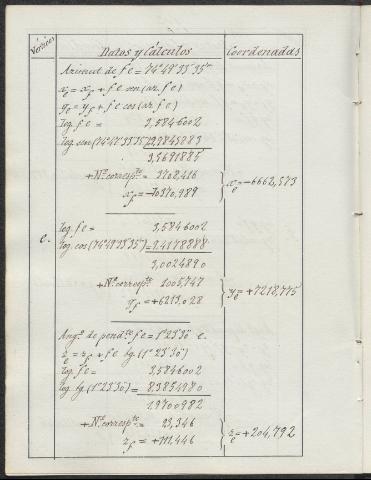 Vértices Datos y Cálculos Coordenadas
Azimut de fe = 74° 49' 35' 35"
x_e = x_f + fe sen (az. fe)
y_e = y_f + fe cos (az. fe)
log. fe = 3,5846002
log. sen (74° 49' 35' 35") = 9,9845883
3,5691885
+ N.º corresp.te = 3708,416
x_f = -10370,989 } x_e = -6662,573
log. fe = 3,5846002
e. log. cos (74° 49' 35' 35") = 9,4178888
3,0024890
+ N.º corresp.te = 1005,747
y_f = +6213,028 } y_e = +7218,775
Ang.º de pend.te fe = 1° 23' 30" e.
z_e = z_f + fe tg. (1° 23' 30")
log. fe = 3,5846002
log. tg. (1° 23' 30") = 8,3854980
1,9700982
+ N.º corresp.te = 93,346
z_f = +111,446 } z_e = +204,792